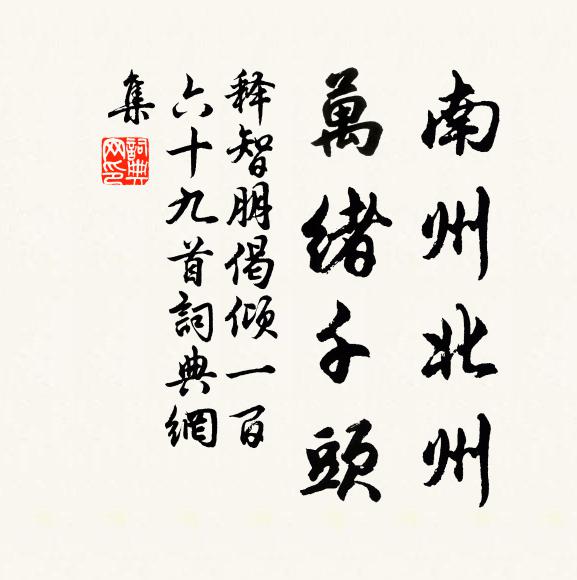 南州北州
萬緒千頭
释智朋偈傾一百
六十九首詞典網
集
詞典
网印